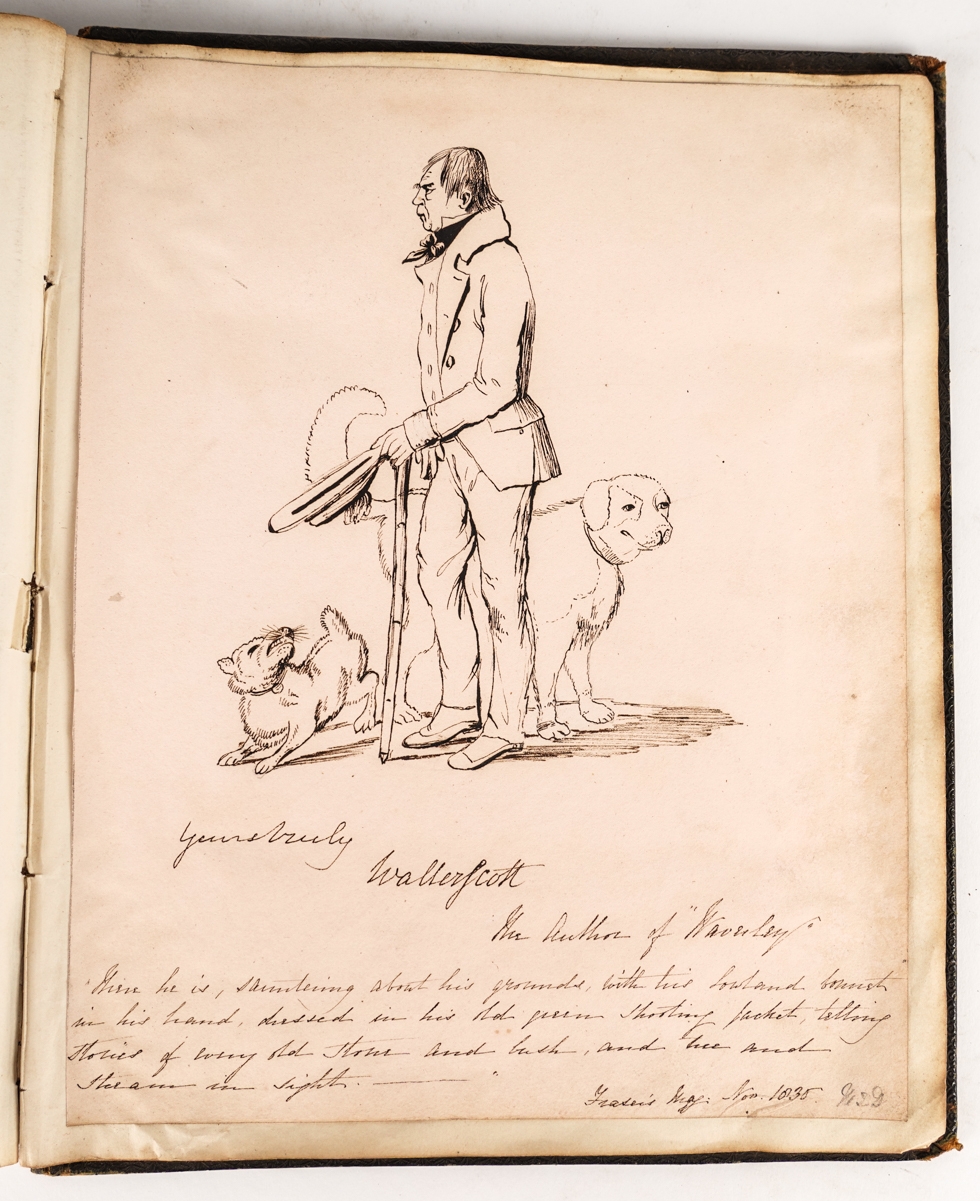 Yours truly
Walter Scott
The Author of "Waverley"
"There he is, sauntering about his grounds, with his Lowland bonnet
in his hand, dressed in his old green shooting jacket, telling
stories of every old stone and bush, and tree and
stream in sight. ——— "
Fraser's Mag: Nov. 1835